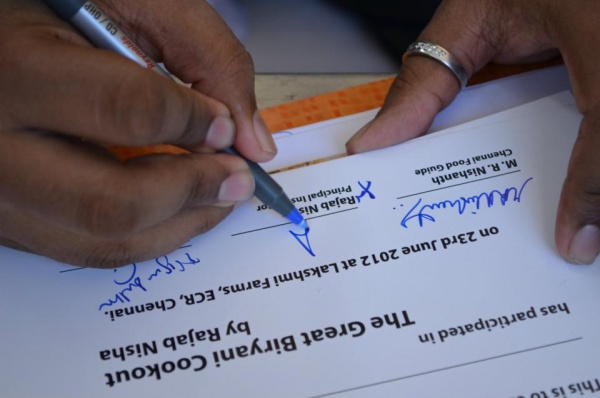 This is to
has participated in
The Great Biryani Cookout
by Rajab Nisha
on 23rd June 2012 at Lakshmi Farms, ECR, Chennai.
x Rajab Nis
Principal Ins
or
M. R. Nishanth
Chennai Food Guide
Reynolds